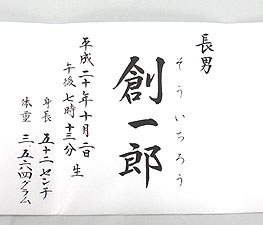 長男
そういちろう
創一郎
平成二十年十月二日
午後七時十三分 生
身長 五十二センチ
体重 三、五六四グラム